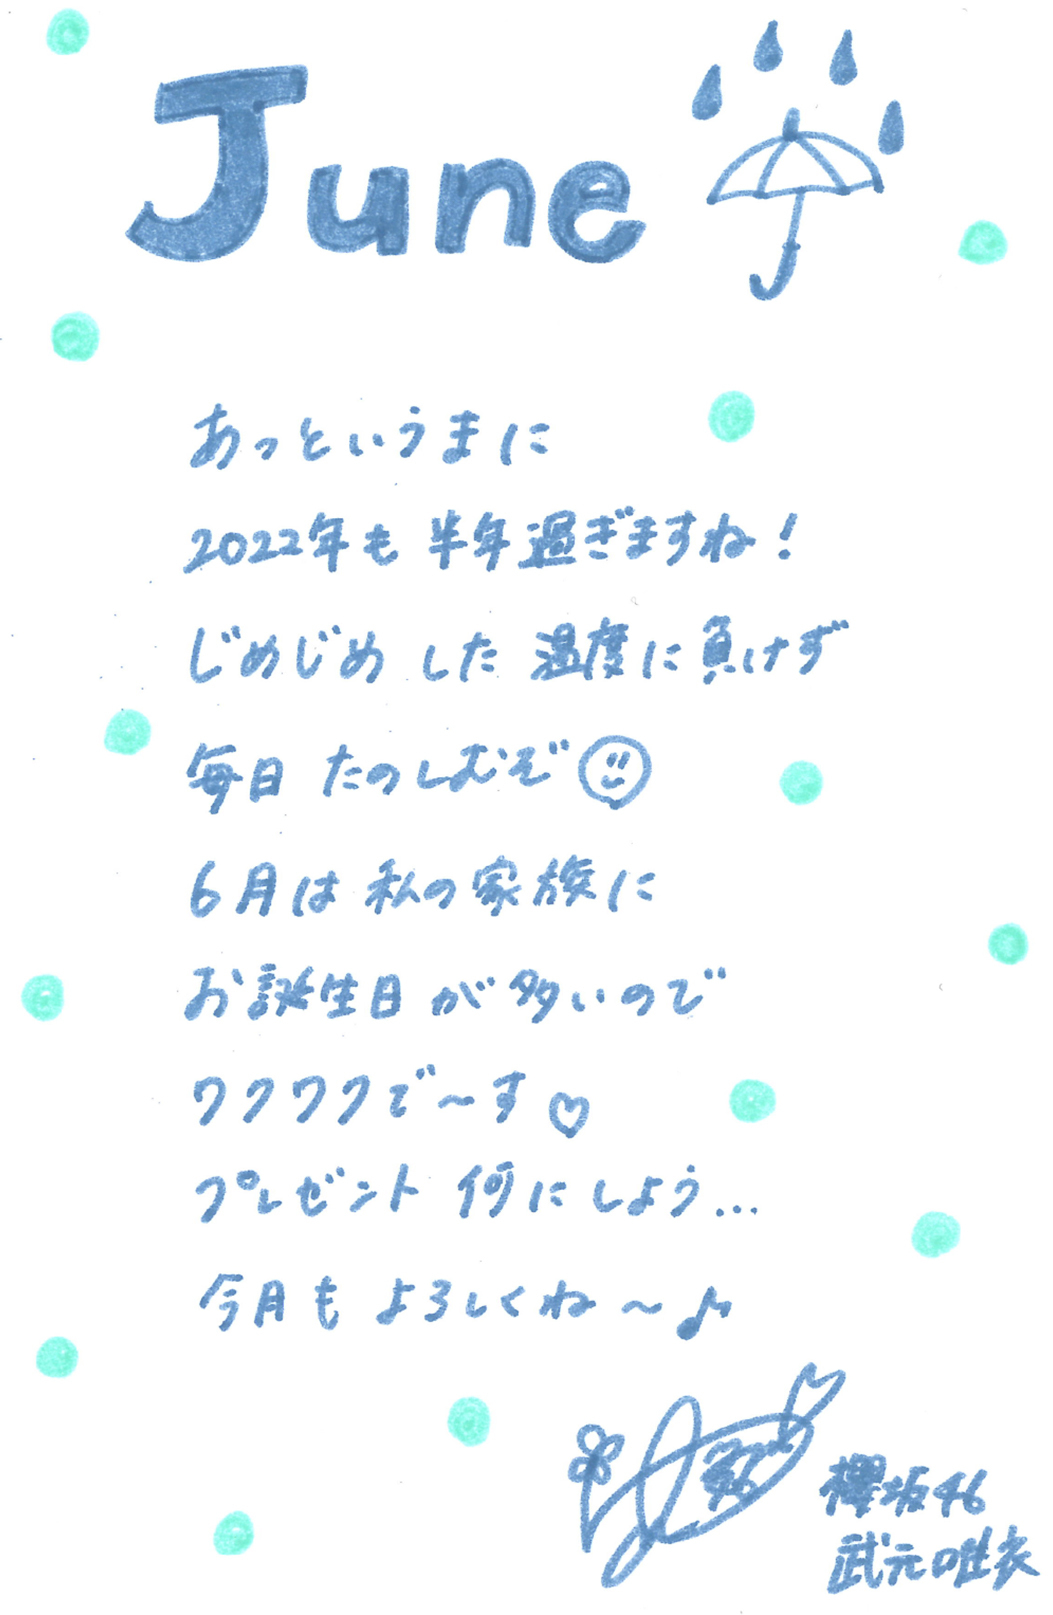 June
あっというまに
2022年も 半年過ぎますね！
じめじめ した 温度に負けず
毎日 たのしむぞ
6月は 私の家族に
お誕生日が多いので
ワクワクで〜す♡
プレゼント 何にしよう...
今月も よろしくね〜♪
櫻坂46
武元唯衣